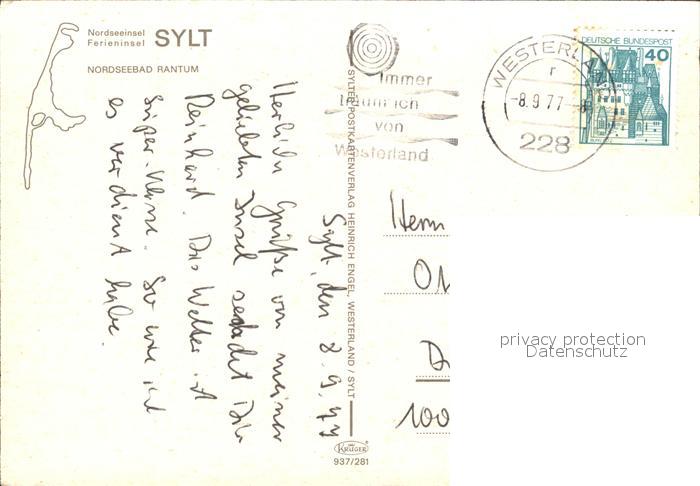 Nordseeinsel
Ferieninsel SYLT
NORDSEEBAD RANTUM
Sylt, den 8.9.77
Herzliche Grüße von meiner
geliebten Insel sendet Dir
Reinhard. Das Wetter ist
super-klasse. So wie ich
es verdient habe.
SYLTER POSTKARTENVERLAG HEINRICH ENGEL, WESTERLAND / SYLT
KRÜGER
937/281
Immer
von
Westerland
WESTERLAND
-8.9.77-
228
DEUTSCHE BUNDESPOST
40
Herrn
100
privacy protection
Datenschutz